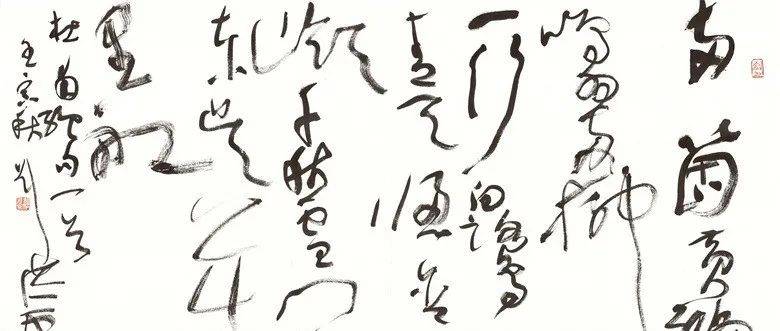 两箇黄鹂
鸣翠柳
一行白鹭
上青天窗含
岭千秋雪门
东吴万
里船
杜甫绝句一首